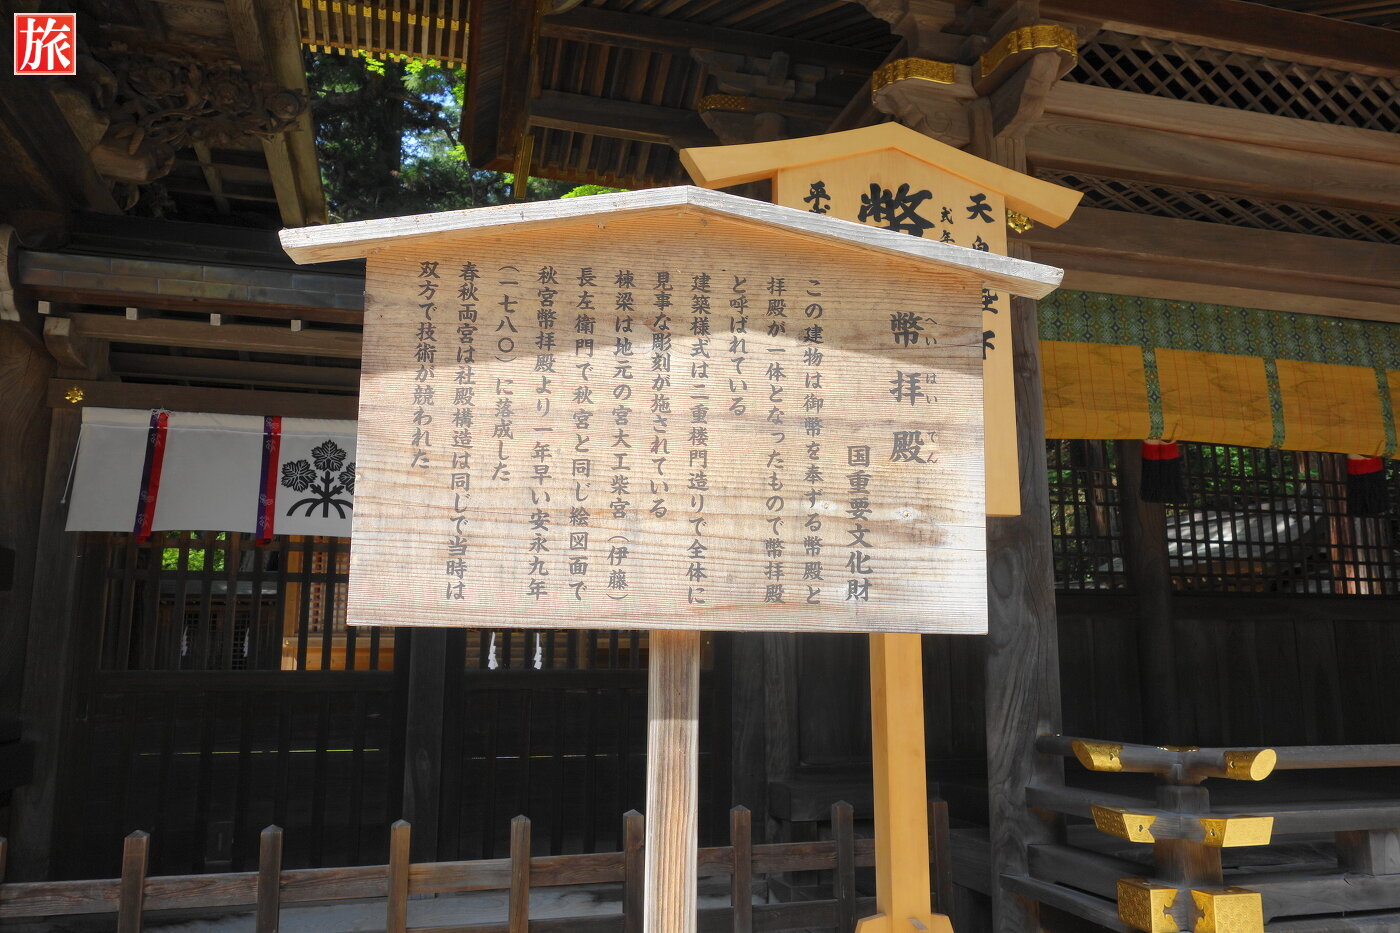 旅
幣拝殿
へい はい でん
国重要文化財
この建物は御幣を奉ずる幣殿と
拝殿が一体となったもので幣拝殿
と呼ばれている
建築様式は二重楼門造りで全体に
見事な彫刻が施されている
棟梁は地元の宮大工柴宮（伊藤）
長左衛門で秋宮と同じ絵図面で
秋宮幣拝殿より一年早い安永九年
（一七八〇）に落成した
春秋両宮は社殿構造は同じで当時は
双方で技術が競われた
天皇陛下
弐年
幣
平成